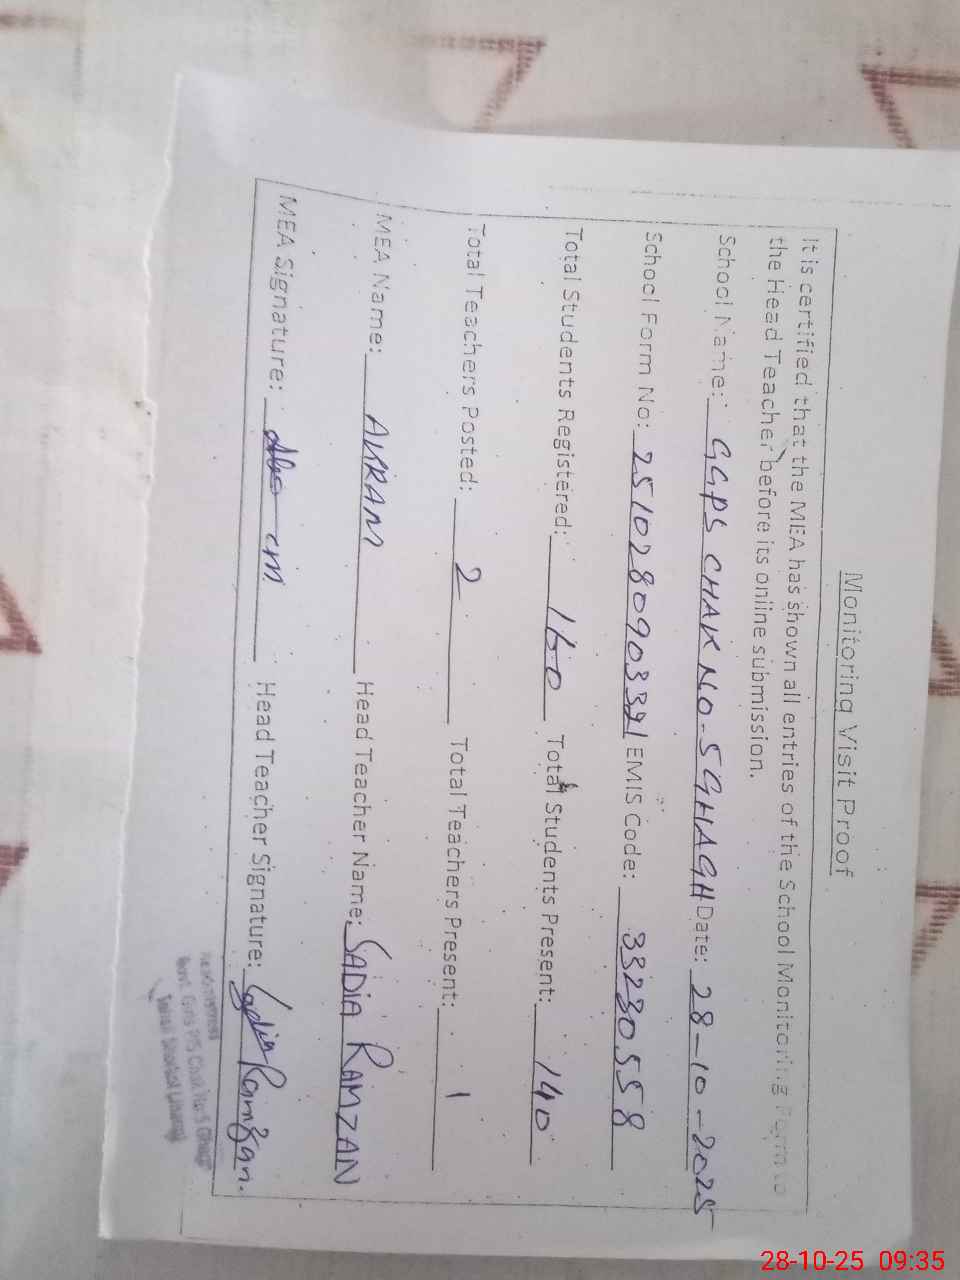 Monitoring Visit Proof
It is certified that the MEA has shown all entries of the School Monitoring Form to
the Head Teacher before its online submission.
School Name: GGPS CHAK NO. 5 GHAGH Date: 28-10-2025
School Form No: EMIS Code: 33230558
Total Students Registered: 160 Total Students Present: 140
Total Teachers Posted: 2 Total Teachers Present: 1
MEA Name: AKRAM Head Teacher Name: SADIA RAMZAN
MEA Signature: Head Teacher Signature: Sadia Ramzan.
28-10-25 09:35